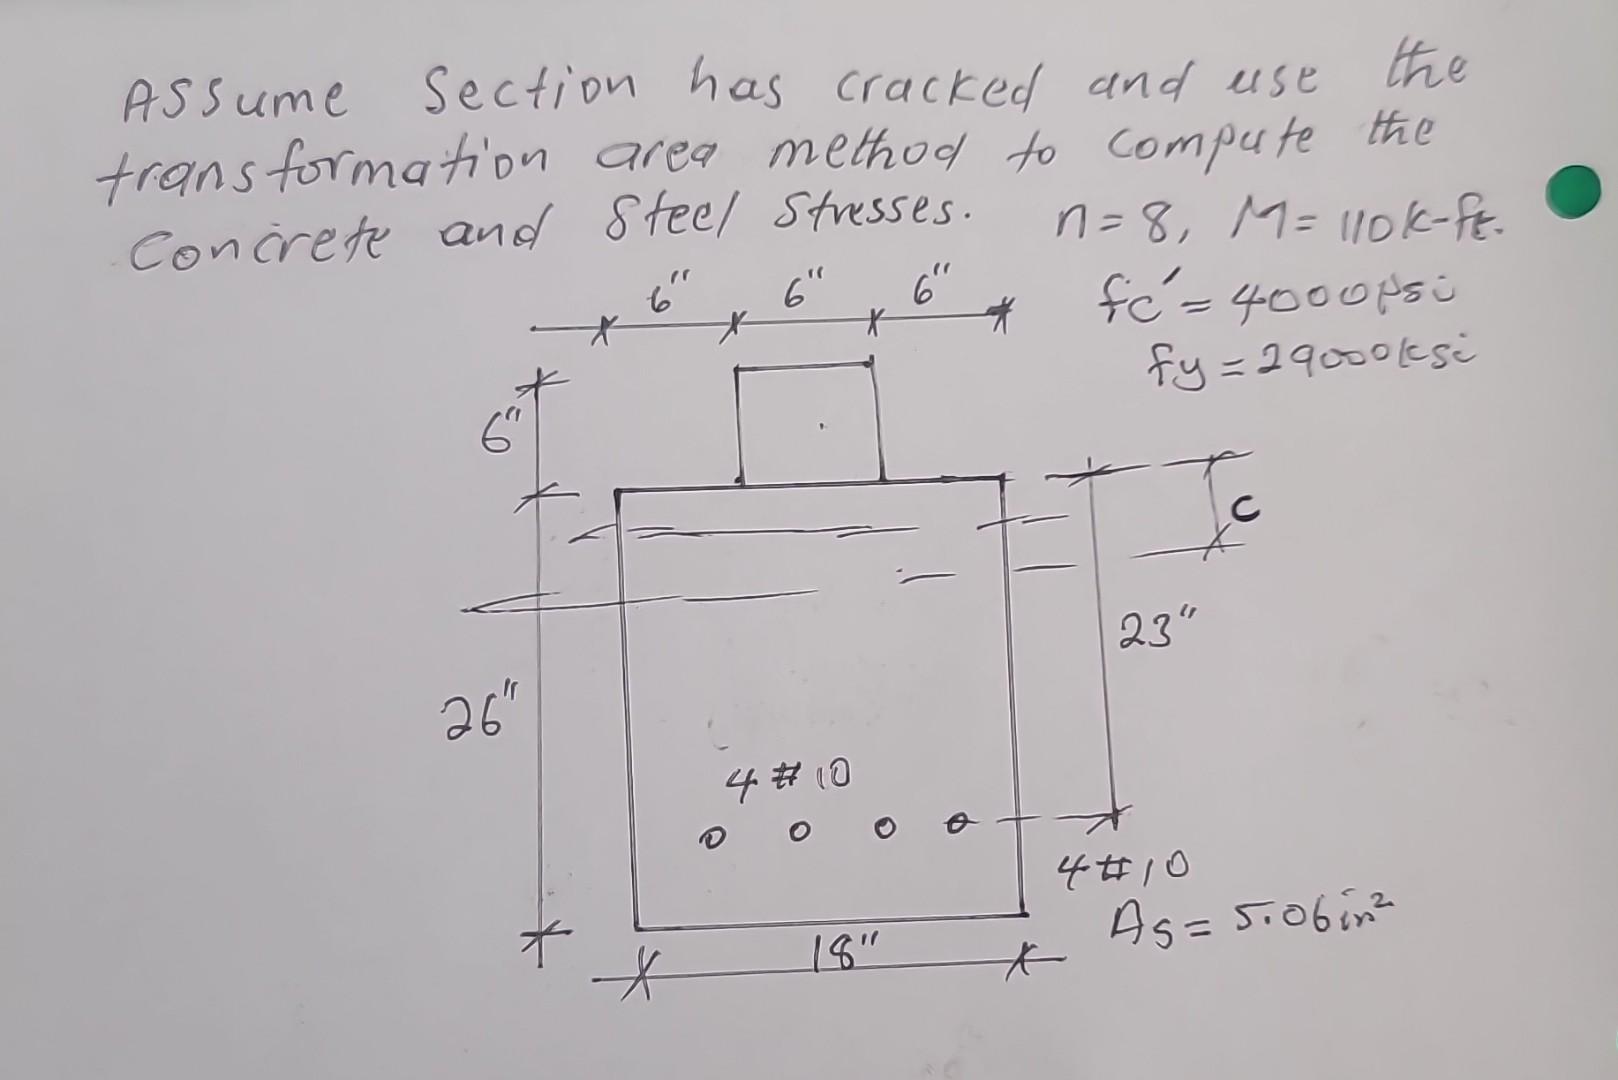 Assume Section has cracked and use the
transformation area method to compute the
Concrete and Steel Stresses. n=8, M= 110k-ft.
6" 6" 6"
fc'= 4000psi
fy = 29000ksi
6"
C
23"
26"
4 # 10
4 # 10
As = 5.06in²
18"